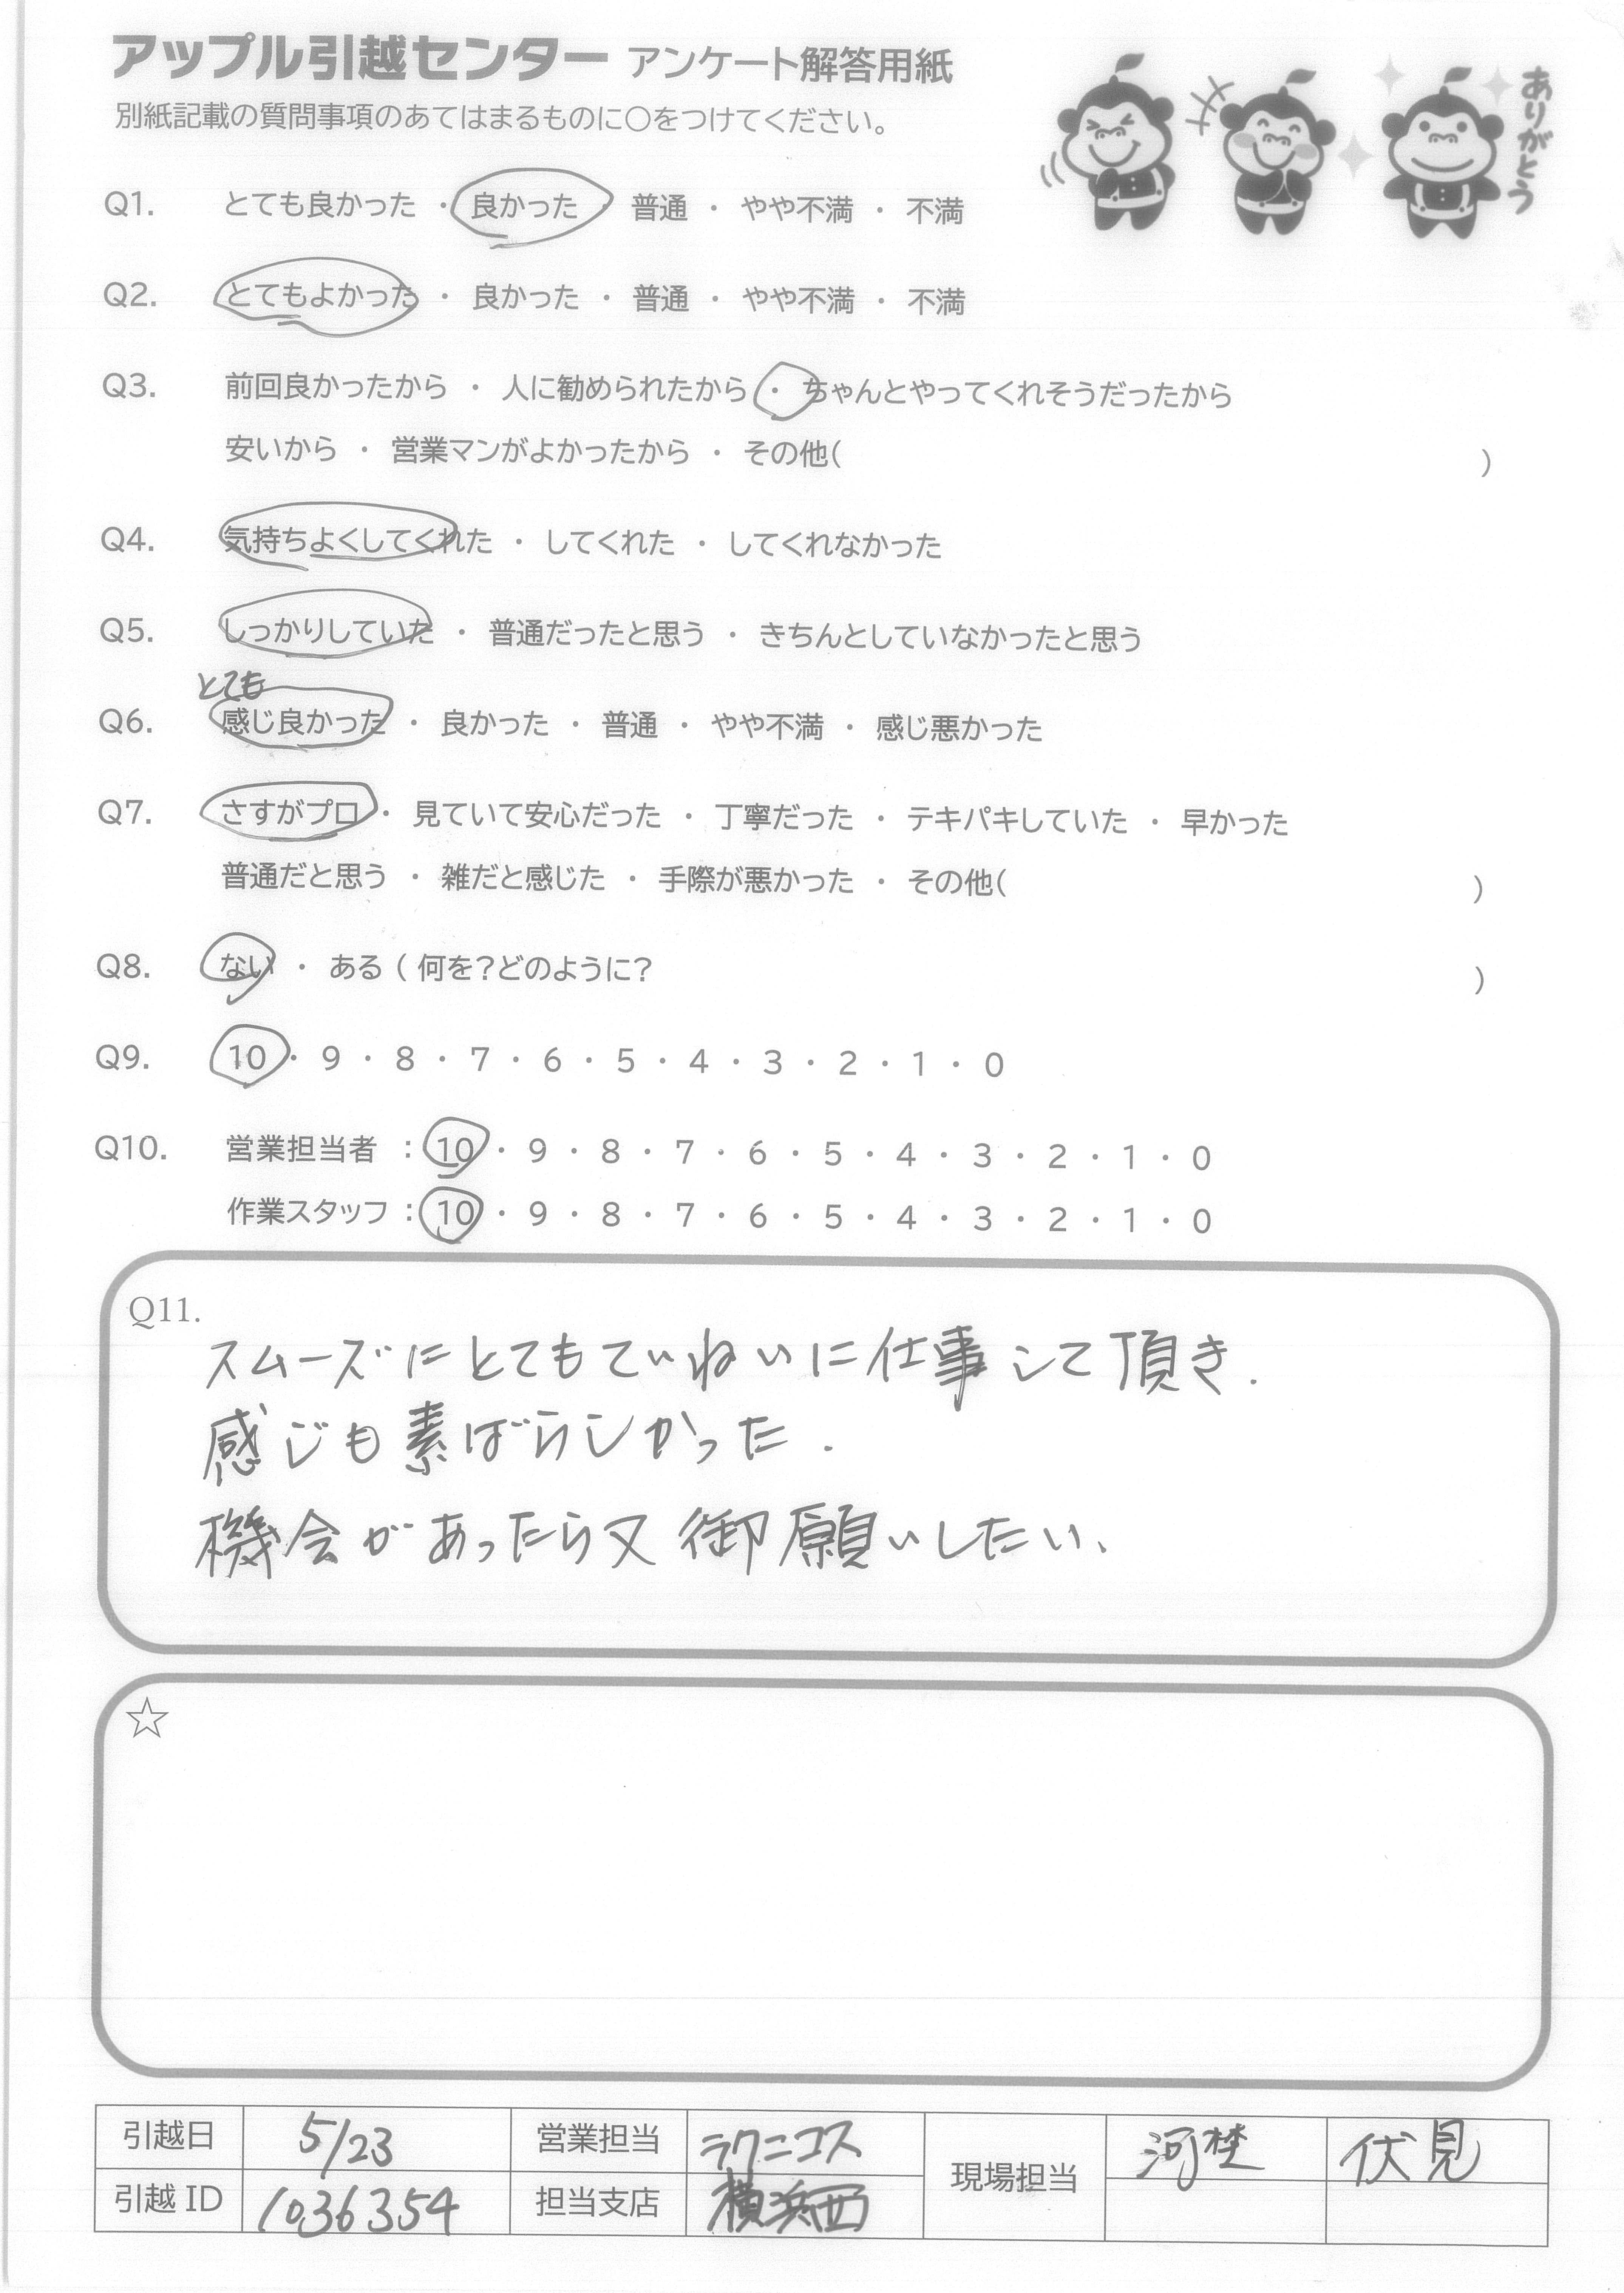 アップル引越センター アンケート解答用紙
別紙記載の質問事項のあてはまるものに○をつけてください。
ありがとう
Q1. とても良かった ・ 良かった ・ 普通 ・ やや不満 ・ 不満
Q2. とてもよかった ・ 良かった ・ 普通 ・ やや不満 ・ 不満
Q3. 前回良かったから ・ 人に勧められたから ・ ちゃんとやってくれそうだったから
安いから ・ 営業マンがよかったから ・ その他( )
Q4. 気持ちよくしてくれた ・ してくれた ・ してくれなかった
Q5. しっかりしていた ・ 普通だったと思う ・ きちんとしていなかったと思う
とても
Q6. 感じ良かった ・ 良かった ・ 普通 ・ やや不満 ・ 感じ悪かった
Q7. さすがプロ ・ 見ていて安心だった ・ 丁寧だった ・ テキパキしていた ・ 早かった
普通だと思う ・ 雑だと感じた ・ 手際が悪かった ・ その他( )
Q8. ない ・ ある ( 何を?どのように? )
Q9. 10 ・ 9 ・ 8 ・ 7 ・ 6 ・ 5 ・ 4 ・ 3 ・ 2 ・ 1 ・ 0
Q10. 営業担当者 : 10 ・ 9 ・ 8 ・ 7 ・ 6 ・ 5 ・ 4 ・ 3 ・ 2 ・ 1 ・ 0
作業スタッフ : 10 ・ 9 ・ 8 ・ 7 ・ 6 ・ 5 ・ 4 ・ 3 ・ 2 ・ 1 ・ 0
Q11.
スムーズにとてもていねいに仕事して頂き.
感じも素ばらしかった.
機会があったら又御願いしたい、
☆
引越日 5/23 営業担当 ラクニコス 現場担当 伏見
引越ID 1036354 担当支店 横浜西